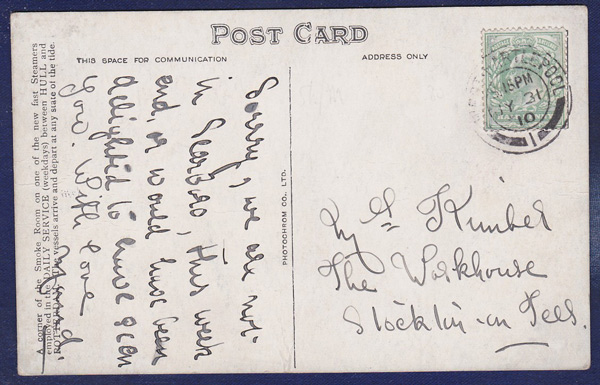 POST CARD
THIS SPACE FOR COMMUNICATION
ADDRESS ONLY
A corner of the Smoke Room on one of the new fast Steamers
employed in the DAILY SERVICE (weekdays) between HULL and
ROTTERDAM. The vessels arrive and depart at any state of the tide.
Sorry, we are not
in Scarboro, this week
end, or would have been
delighted to have seen
you. With love
PHOTOCHROM CO., LTD.
POOL
15PM
MY 31
10
1
Kimber
The Workhouse
Stockton-on Tees.